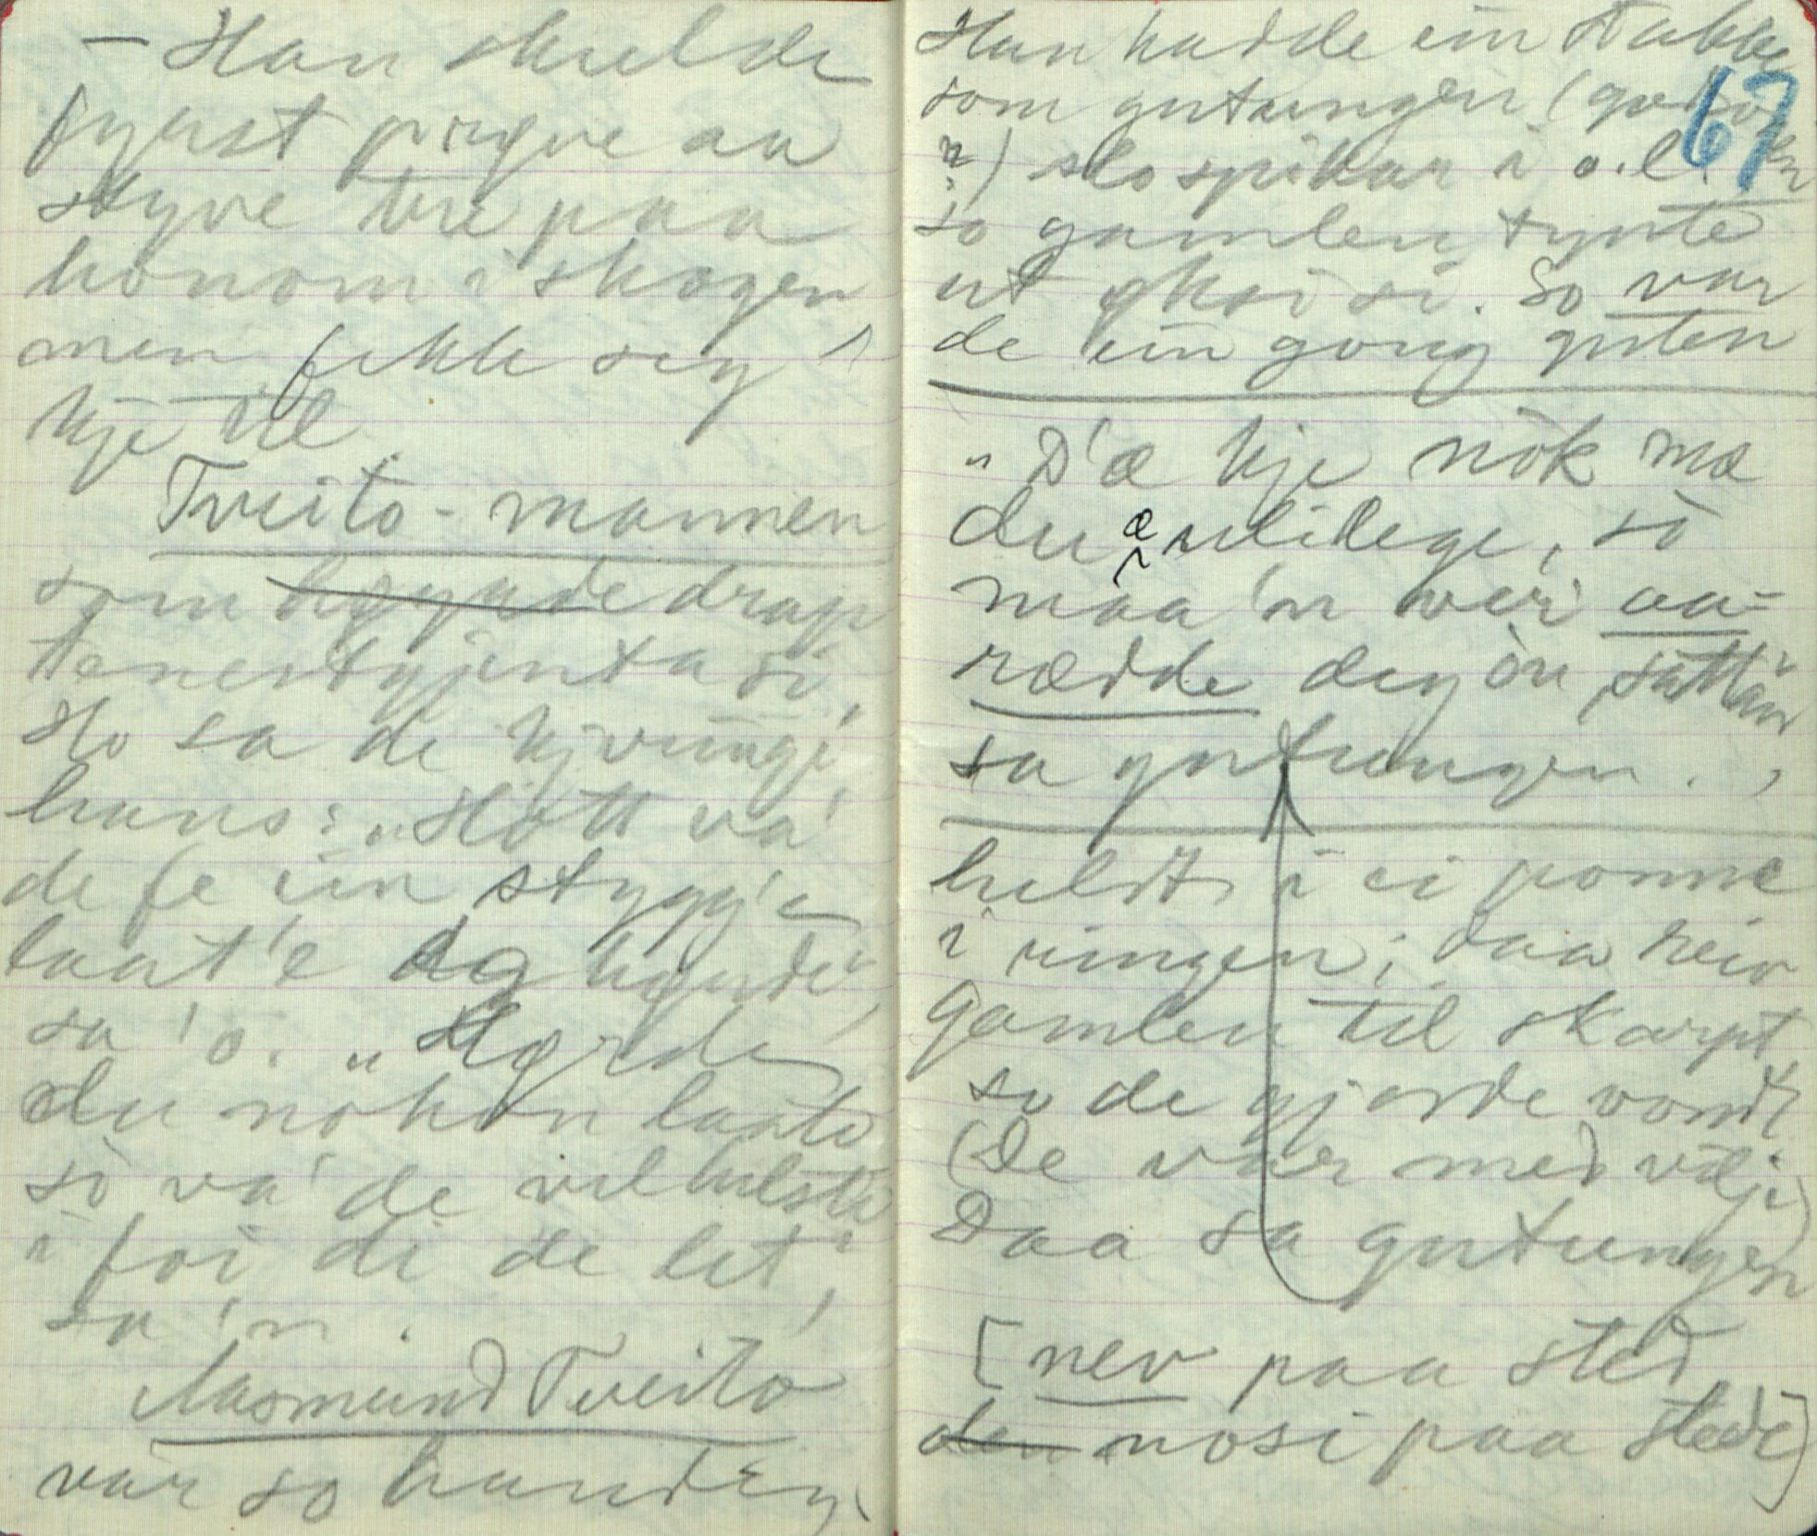 – Han skulde
fyrst prøve aa
styve tre paa
honom i skogen
men fekk seg i
kje til.
Tveito-mannen
som høyrde drap
tenestgjenta si,
sto sa de kjæringi
hans: "Hott va'
de fe ein stygg'e
laat'e eg høyrde",
sa 'o. "Hørde
du nokon laate
so va' de vel helste
i foi di de let",
sa 'n.
Aasmund Tveito
var so handig
Han hadde ein stabbe
som gutungen
?) slo spikar i o.l.
67
so gamlen tynte
ut øksi si. So var
de ein gong guten
"D'æ kje nòk mæ
du æ ulidege, so
maa 'n ver' aa-
rædde deg òu, sattan"
sa gutungen.
heldt i ei ponne
i ringen; daa reiv
Gamlen til skarpt,
so de gjorde vondt
(De var med vilje)
Daa sa gutungen
[nev paa sted
den nosi paa stade]